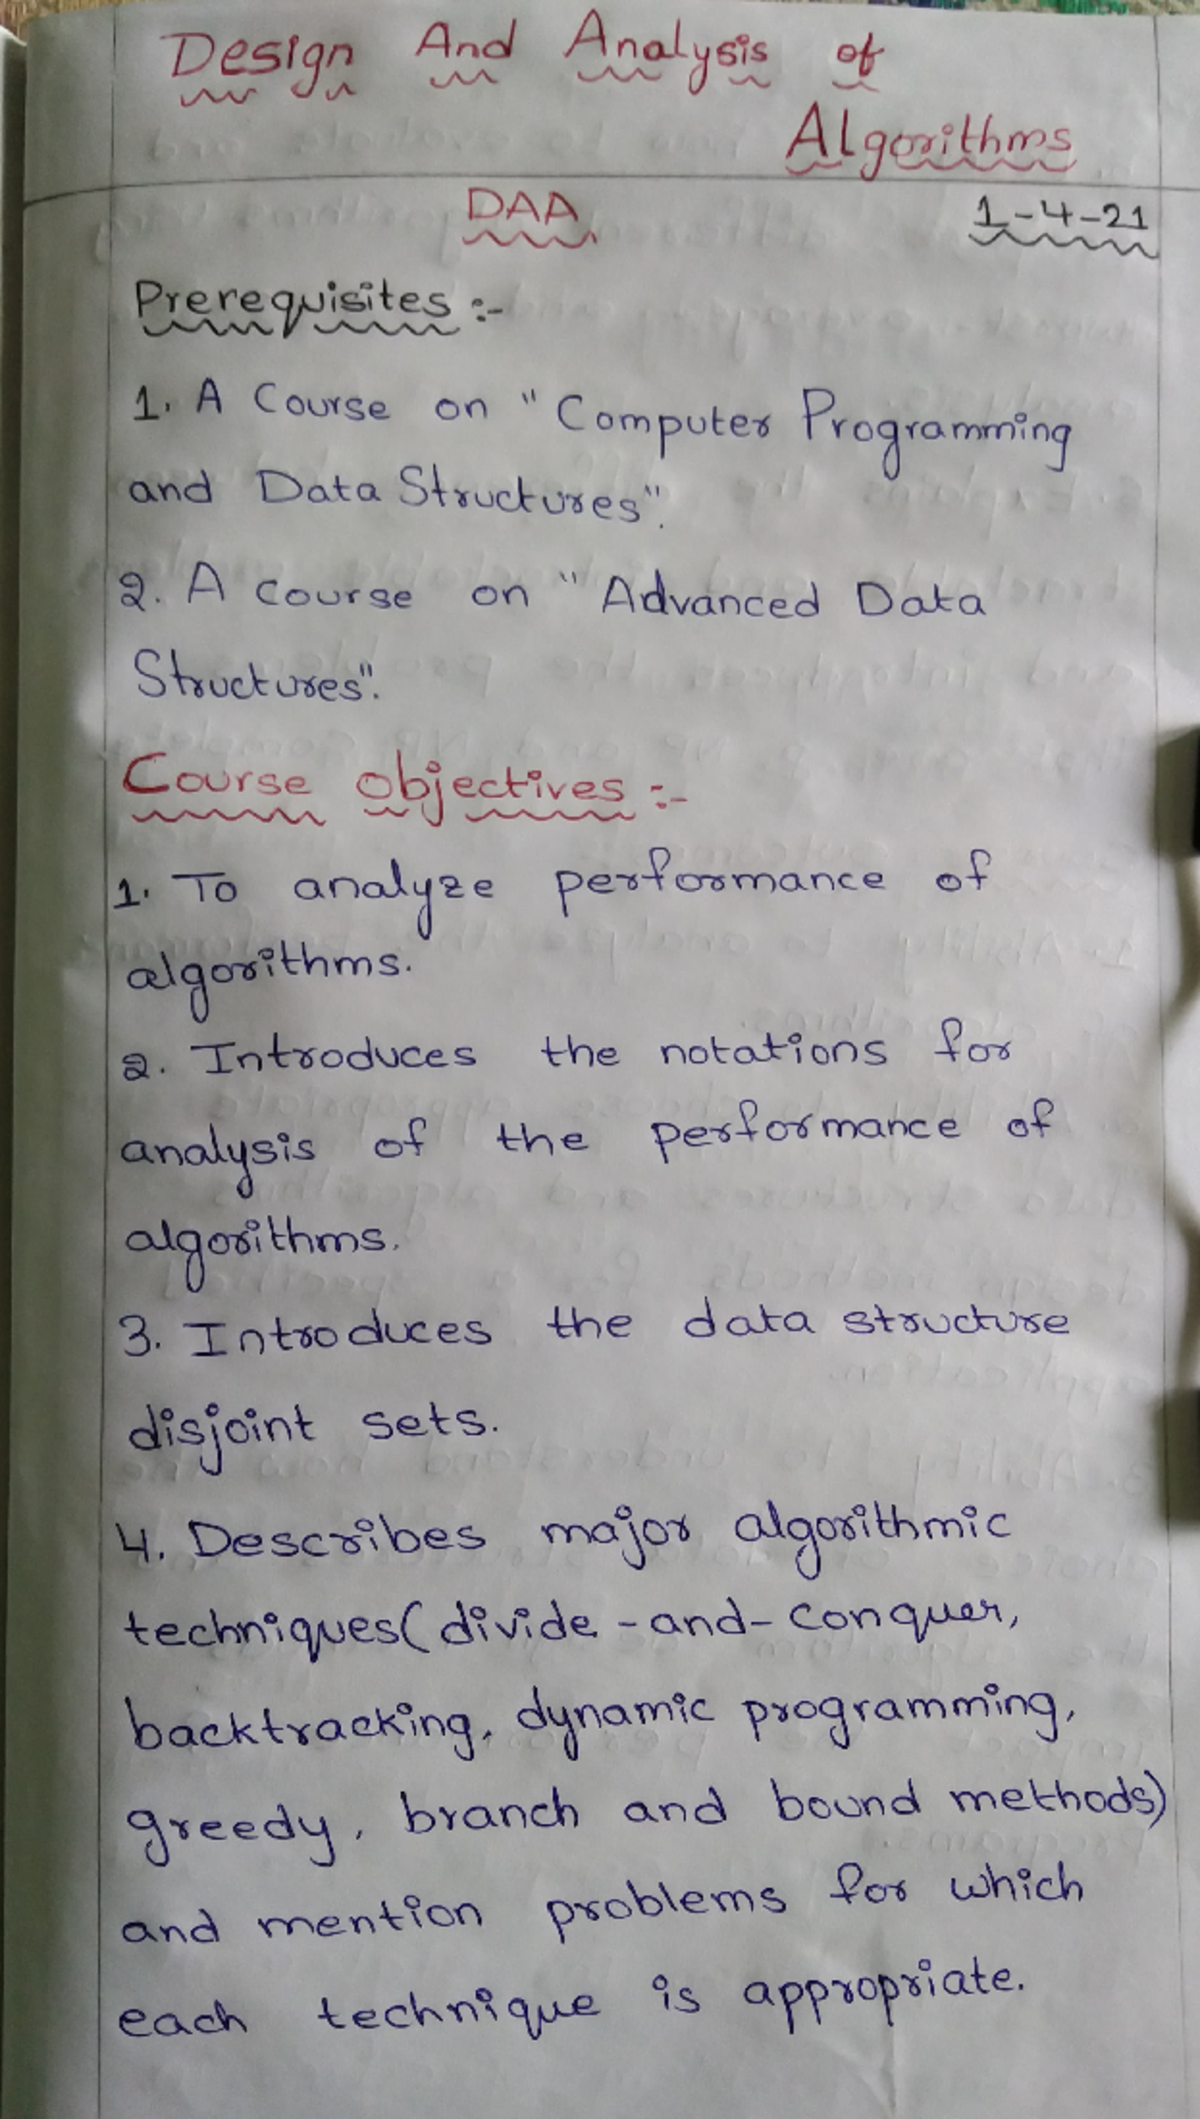 Design And Analysis of
Algorithms
DAA 1-4-21
Prerequisites :-
1. A Course on "Computer Programming
and Data Structures".
2. A course on "Advanced Data
Structures".
Course objectives :-
1. To analyze performance of
algorithms.
2. Introduces the notations for
analysis of the performance of
algorithms.
3. Introduces the data structure
disjoint sets.
4. Describes major algorithmic
techniques (divide-and-conquer,
backtracking, dynamic programming,
greedy, branch and bound methods)
and mention problems for which
each technique is appropriate.